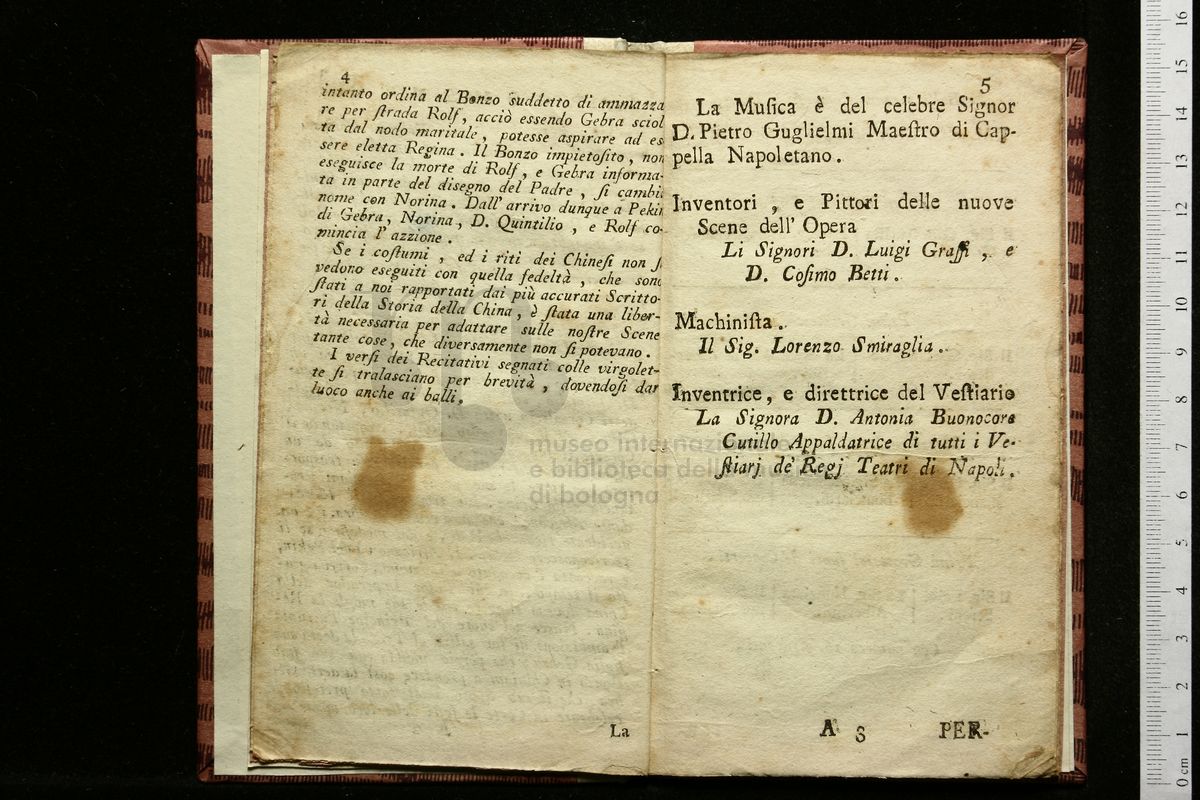 4
intanto ordina al Bonzo suddetto di ammazza
re per ſtrada Rolf, acciò essendo Gebra sciol
ta dal nodo maritale, potesse aspirare ad es
sere eletta Regina. Il Bonzo impietoſito, non
eseguisce la morte di Rolf, e Gebra informa-
ta in parte del disegno del Padre, ſi cambiò
nome con Norina. Dall' arrivo dunque a Pekin
di Gebra, Norina, D. Quintilio, e Rolf co-
mincia l' azzione.
Se i coſtumi, ed i riti dei Chineſi non ſi
vedono eseguiti con quella fedeltà, che sono
ſtati a noi rapportati dai più accurati Scritto-
ri della Storia della China, è ſtata una liber-
tà necessaria per adattare sulle noſtre Scene
tante cose, che diversamente non ſi potevano.
I verſi dei Recitativi segnati colle virgolet-
te ſi tralasciano per brevità, dovendoſi dar
luoco anche ai balli.
La
5
La Muſica è del celebre Signor
D. Pietro Guglielmi Maeſtro di Cap-
pella Napoletano.
Inventori, e Pittori delle nuove
Scene dell' Opera
Li Signori D. Luigi Graffi, e
D. Coſimo Betti.
Machiniſta.
Il Sig. Lorenzo Smiraglia.
Inventrice, e direttrice del Veſtiario
La Signora D. Antonia Buonocore
Cutillo Appaldatrice di tutti i Ve-
ſtiarj de' Regj Teatri di Napoli.
A 3 PER-
museo internazionale
e biblioteca della musica
di bologna
0 cm 1 2 3 4 5 6 7 8 9 10 11 12 13 14 15 16